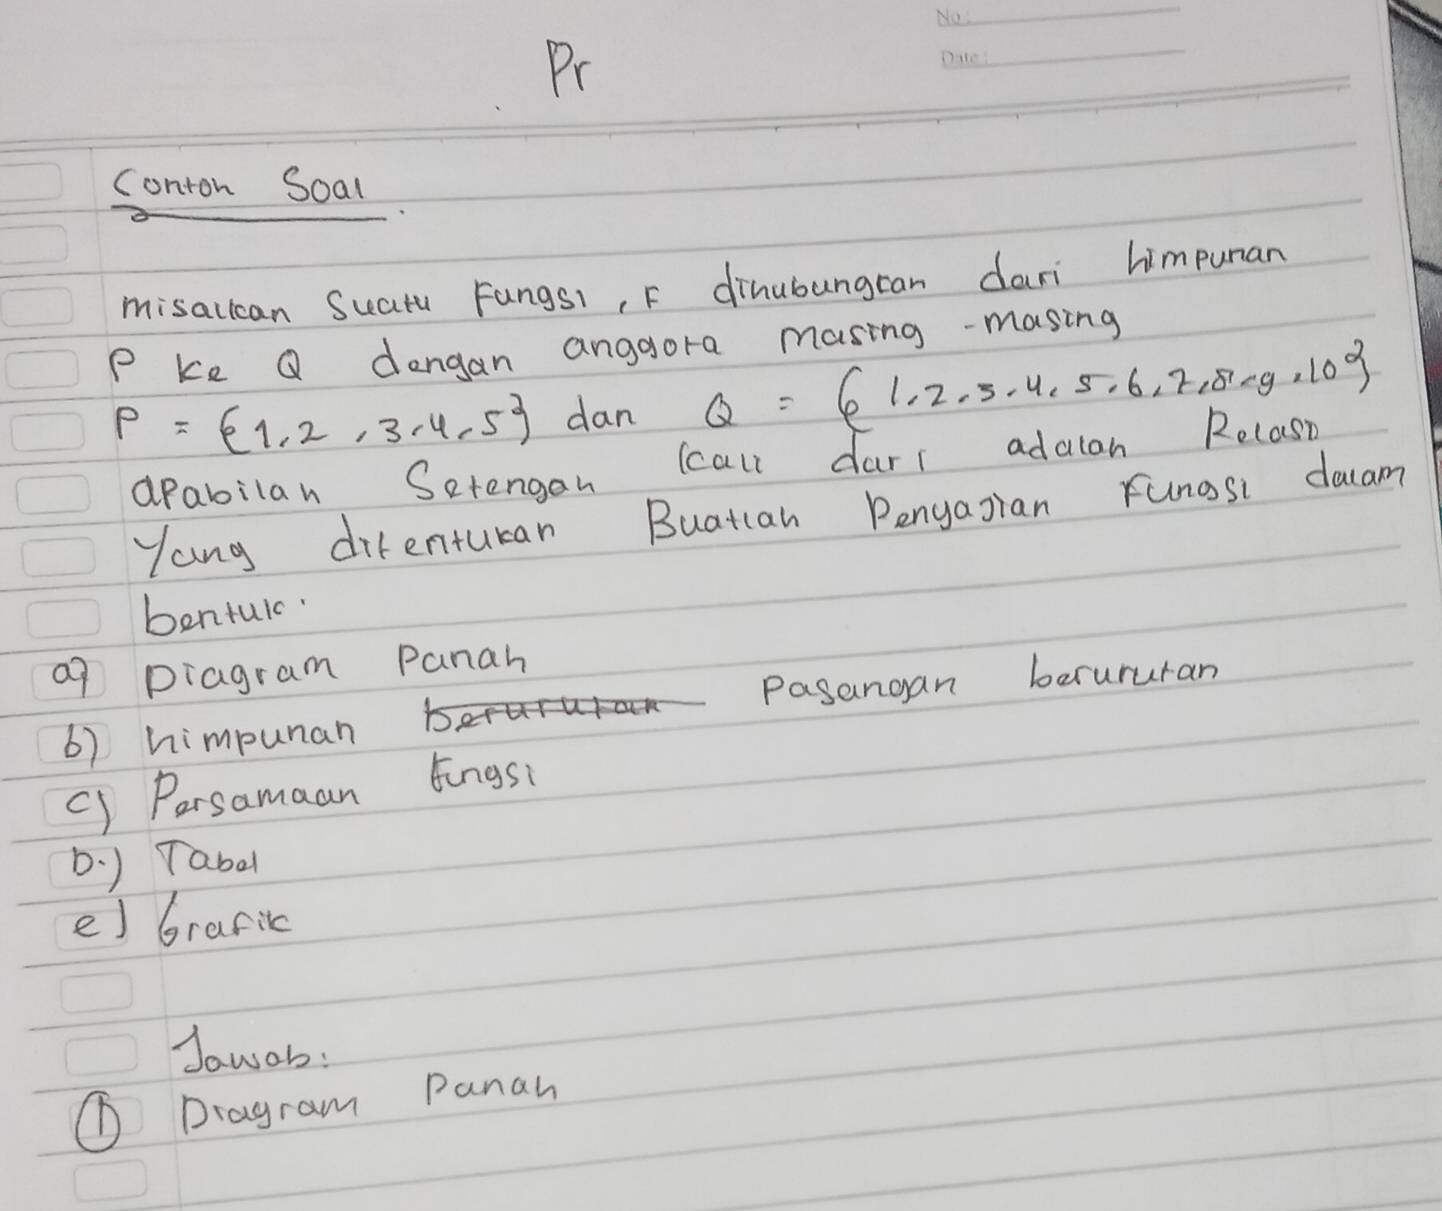 No:
Date:
Pr
Contoh Soal
misalkan Suatu Fungsi, F dihubungkan dari himpunan
P ke Q dengan anggota masing-masing
P = {1,2,3,4,5} dan Q = {1,2,3,4,5,6,7,8,9,10}
apabilah Setengah kali dari adalah Relasi
Yang ditentukan Buatlah Penyajian Fungsi dalam
bentuk.
a) Diagram Panah
b) himpunan berurutan Pasangan berurutan
c) Persamaan fungsi
D.) Tabel
e) Grafik
Jawab:
1 Diagram Panah